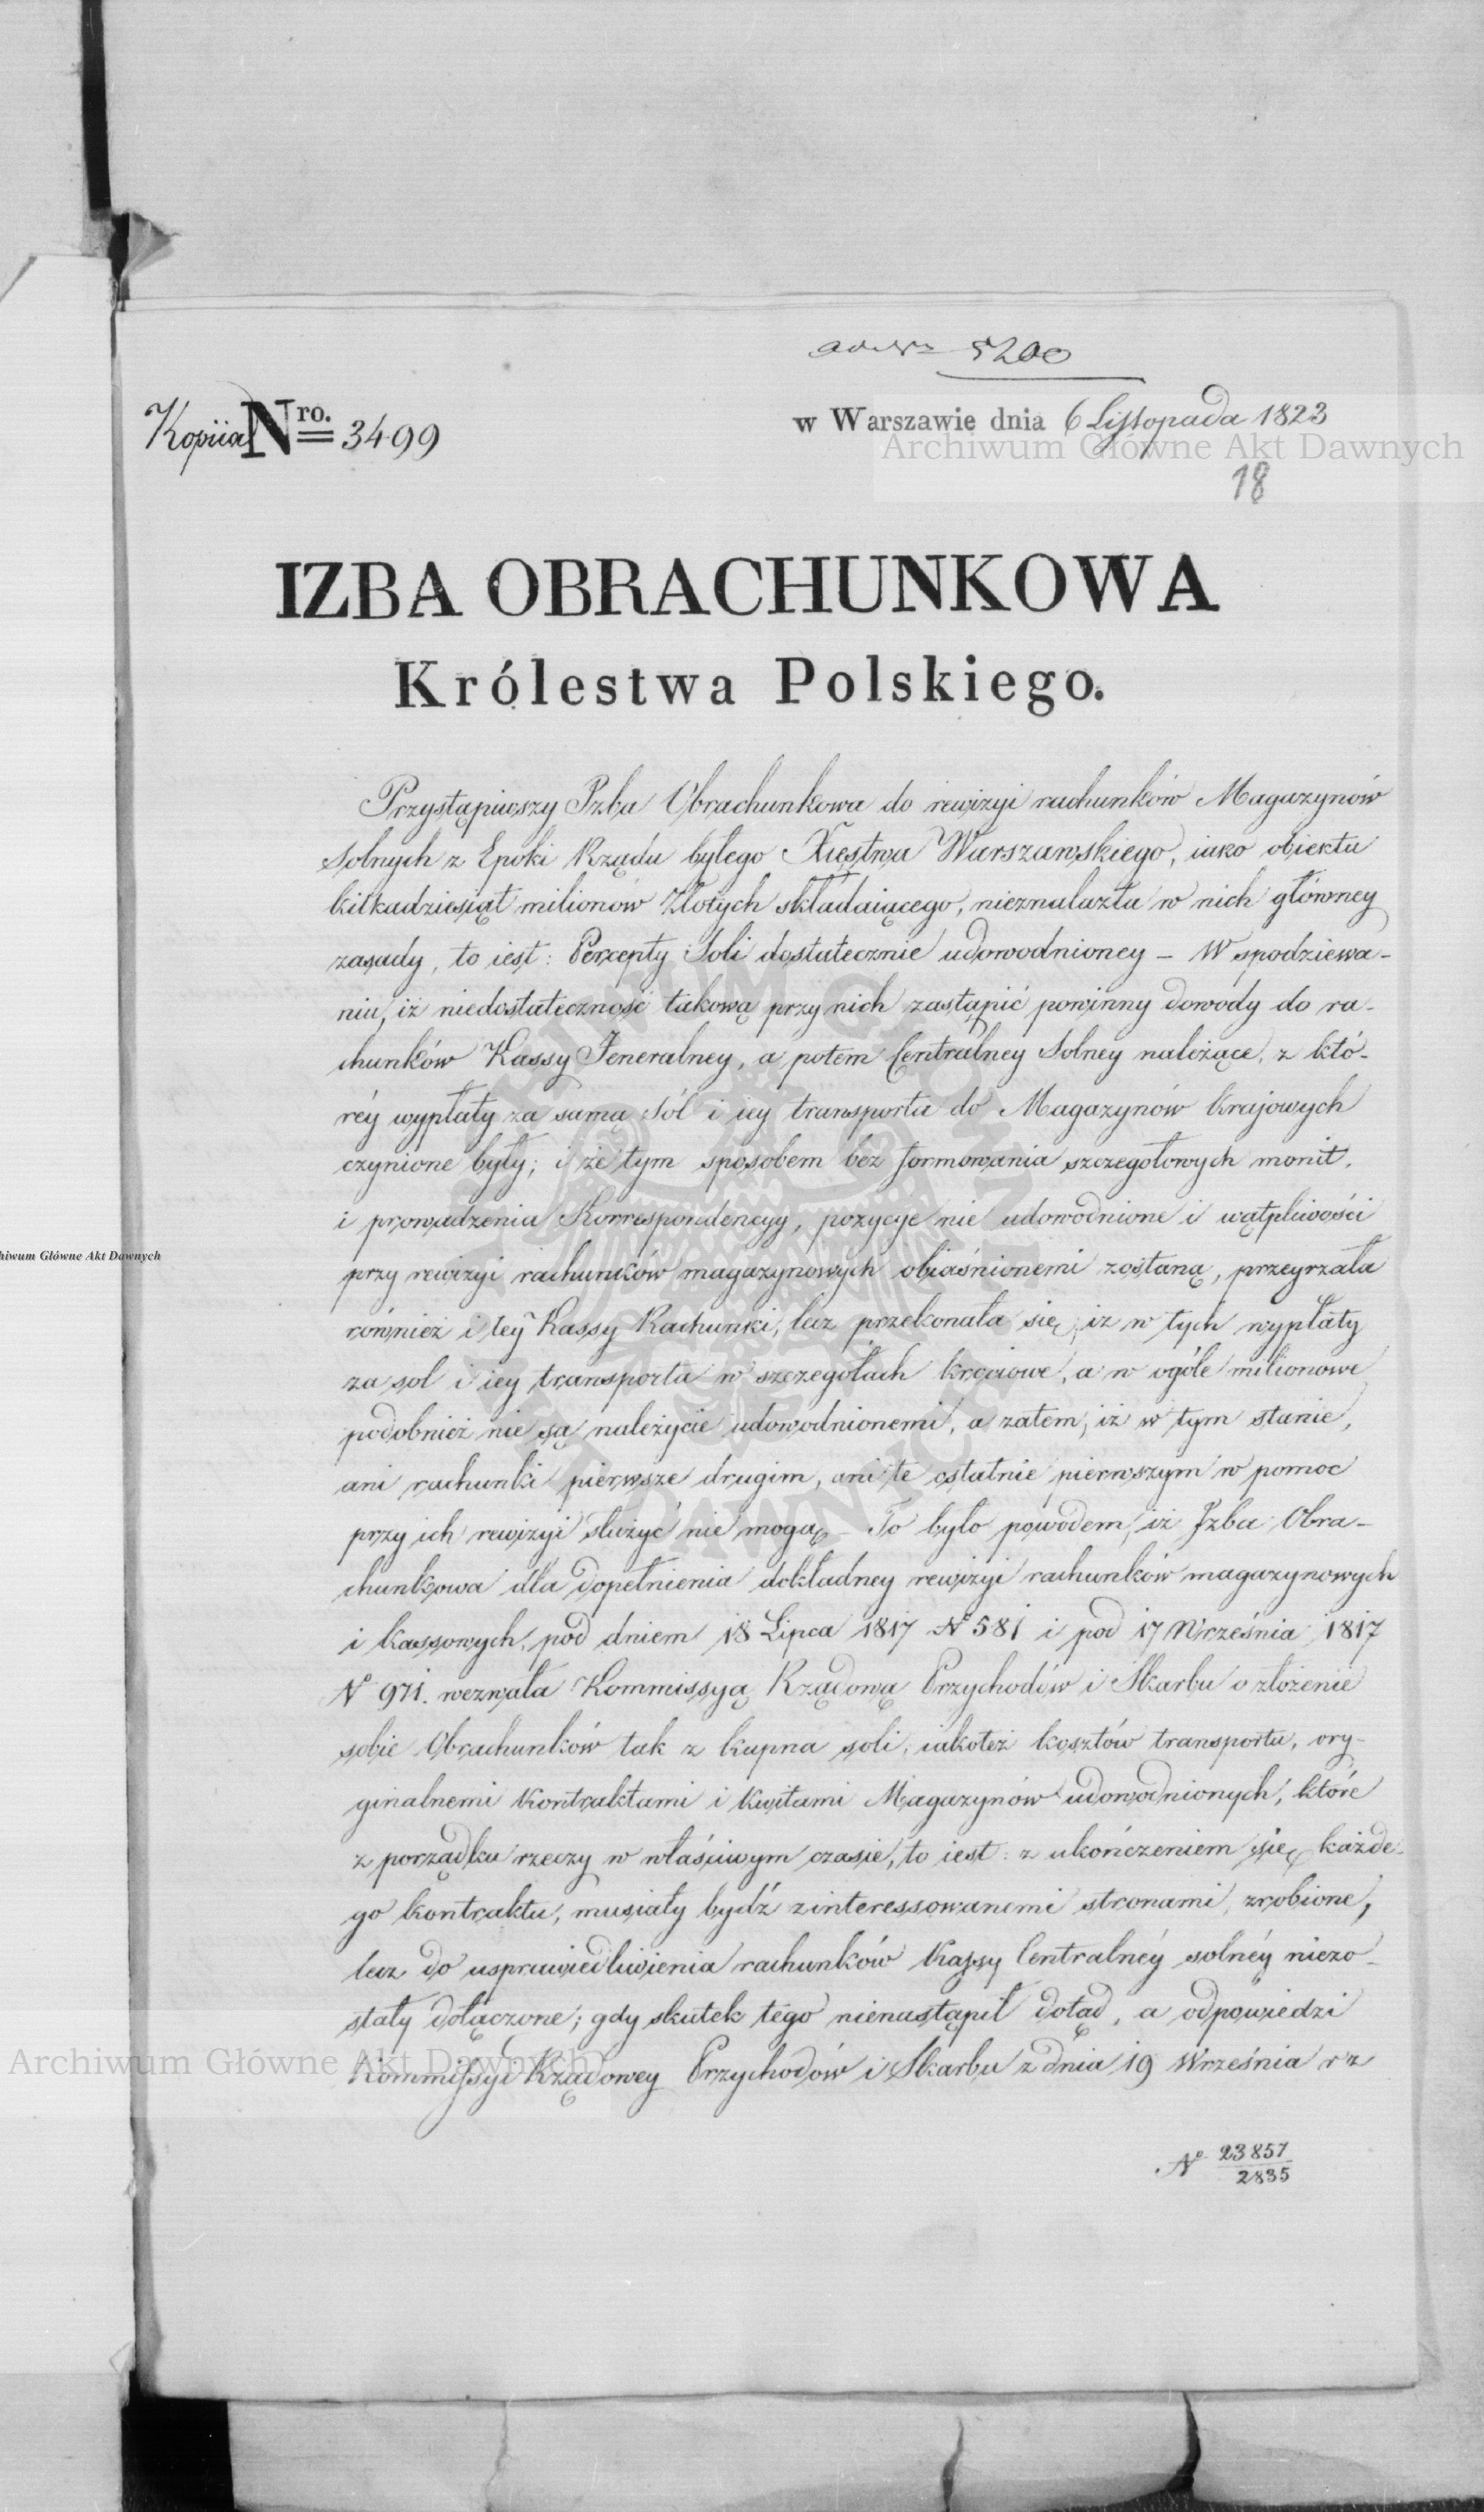 ad Nr 5200
Kopiia Nro. 3499
w Warszawie dnia 6 Listopada 1823
Archiwum Główne Akt Dawnych
18
IZBA OBRACHUNKOWA
Królestwa Polskiego.
Przystąpiwszy Izba Obrachunkowa do rewizyi rachunków Magazynów
Solnych z Epoki Rządu byłego Xięstwa Warszawskiego, iako obiektu
kilkadziesiąt milionów Złotych składaiącego, nieznalazła w nich główney
zasady, to iest: Percepty Soli dostatecznie udowodnioney – W spodziewa-
niu, iż niedostateczność takową przy nich zastąpić powinny dowody do ra-
chunków Kassy Jeneralney, a potem Centralney Solney należące, z któ-
réy wypłaty za samą Sól i iey transporta do Magazynów Krajowych
czynione były; i że tym sposobem bez formowania szczegołowych monit,
i prowadzenia Korrespondencyy, pozycye nie udowodnione i wątpliwości
przy rewizyi rachunków magazynowych obiaśnionemi zostaną, przeyrzała
również i tey Kassy Rachunki, lecz przekonała się, iż w tych wypłaty
za sol i iey transporta w szczegołach krociowe, a w ogóle milionowe
podobnież nie są należycie udowodnionemi, a zatem, iż w tym stanie,
ani rachunki pierwsze drugim, ani te ostatnie pierwszym w pomoc
przy ich rewizyi służyć nie mogą – To było powodem, iż Izba Obra-
chunkowa dla dopełnienia dokładney rewizyi rachunków magazynowych
i kassowych, pod dniem 18 Lipca 1817 No 581 i pod 17 Września 1817
No 971. wezwała Kommissyą Rządową Przychodów i Skarbu o złożenie
sobie Obrachunków tak z kupna soli, iakoteż kosztów transportu, ory-
ginalnemi Kontraktami i Kwitami Magazynów udowodnionych, które
z porządku rzeczy w właściwym czasie, to iest: z ukończeniem się każde-
go kontraktu, musiały bydź zinteressowanemi stronami, zrobione,
lecz do usprawiedliwienia rachunków Kassy Centralnéy solnéy niezo-
stały dołączone; gdy skutek tego nienastąpił dotąd, a odpowiedzi
Kommissyi Rządowey Przychodów i Skarbu z dnia 19 Września r z
No 23857
2835
Archiwum Główne Akt Dawnych
hiwum Główne Akt Dawnych